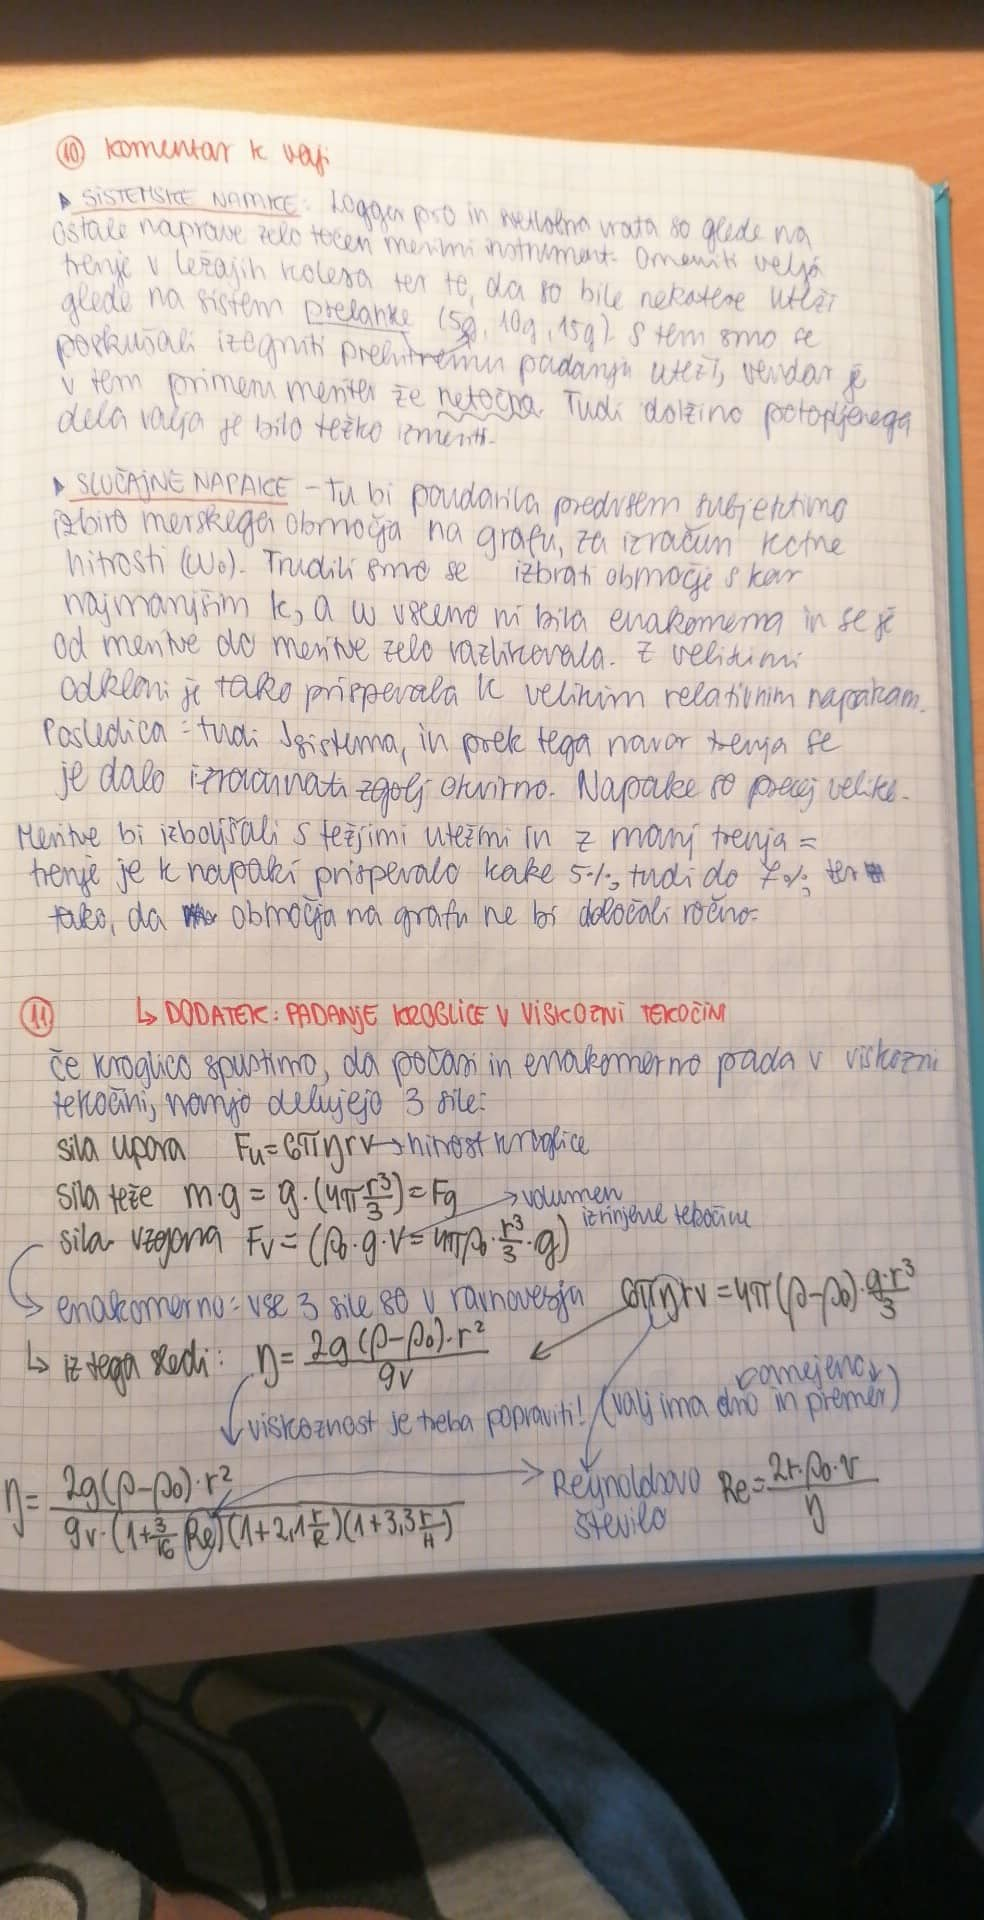 10 komentar k vaji
▸ SISTEMSKE NAPAKE: Logger pro in svetlobna vrata so glede na
ostale naprave zelo točen merilni instrument. Omeniti velja
trenje v ležajih kolesa ter to, da so bile nekatere uteži
glede na sistem prelahke (5g, 10g, 15g). S tem smo se
poskušali izogniti prehitremu padanju uteži, vendar je
v tem primeru meritev že netočna. Tudi dolžino potopljenega
dela valja je bilo težko izmeriti.
▸ SLUČAJNE NAPAKE - Tu bi poudarila predvsem subjektivno
izbiro merskega območja na grafu, za izračun kotne
hitrosti (ω₀). Trudili smo se izbrati območje s kar
najmanjšim k, a ω vseeno ni bila enakomerna in se je
od meritve do meritve zelo razlikovala. Z velikimi
odkloni je tako prispevala k velikim relativnim napakam.
Posledica = tudi Jsistema, in prek tega navor trenja se
je dalo izračunati zgolj okvirno. Napake so precej velike.
Meritve bi izboljšali s težjimi utežmi in z manj trenja =
trenje je k napaki prispevalo kake 5%, tudi do 7%, ter
tako, da območja na grafu ne bi določali ročno.
11 ↳ DODATEK: PADANJE KROGLICE V VISKOZNI TEKOČINI
če kroglico spustimo, da počasi in enakomerno pada v viskozni
tekočini, nanjo delujejo 3 sile:
sila upora Fu = 6πηrv → hitrost kroglice
sila teže m·g = g·(4π r³/3) = Fg
→ volumen izrinjene tekočine
sila vzgona Fv = (ρ₀·g·V = 4πρ₀·r³/3·g)
→ enakomerno = vse 3 sile so v ravnovesju 6πηrv = 4π(ρ-ρ₀)·g·r³/3
↳ iz tega sledi: η = 2g(ρ-ρ₀)·r²/9v
omejeno
↓ viskoznost je treba popraviti! (valj ima dno in premer)
η = 2g(ρ-ρ₀)·r²/9v·(1+3/16 Re)(1+2,1 r/R)(1+3,3 r/H) → Reynoldsovo število Re = 2r·ρ₀·v/η